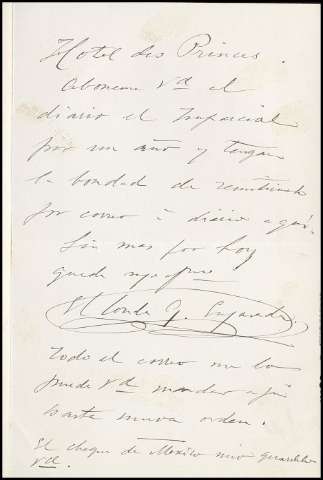 Hotel des Princes.
Aboneme Vd al
diario el Imparcial
por un año y tengan
la bondad de
por correo a diario aqui.
Sin mas por hoy
quede
El Conde
Todo el correo me lo
puede Vd mandar aqui
hasta nueva orden.
El cheque de Mexico mio
Vd.